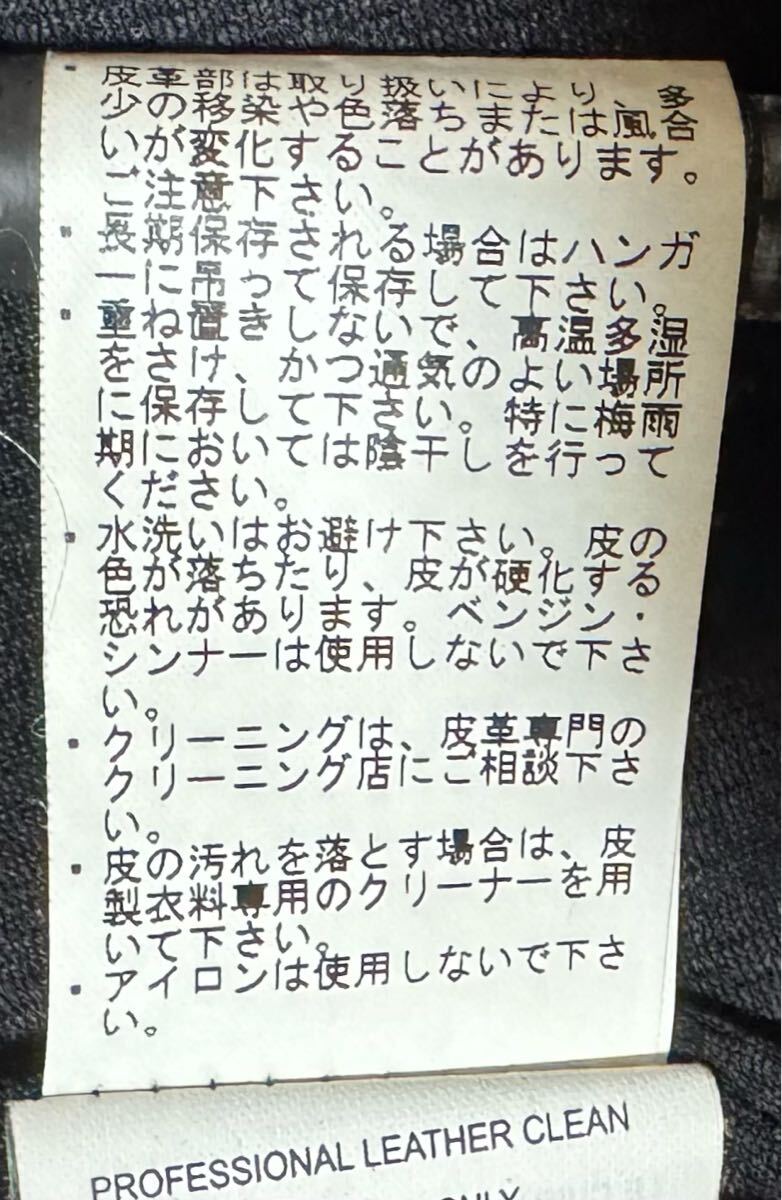 ・皮革部は取り扱いにより、多
少の移染や色落ちまたは風合
いが変化することがあります。
ご注意下さい。
・長期保存される場合はハンガ
ーに吊って保存して下さい。
・重ね置きしないで、高温多湿
をさけ、かつ通気のよい場所
に保存して下さい。特に梅雨
期においては陰干しを行って
ください。
・水洗いはお避け下さい。皮の
色が落ちたり、皮が硬化する
恐れがあります。ベンジン・
シンナーは使用しないで下さ
い。
・クリーニングは、皮革専門の
クリーニング店にご相談下さ
い。
・皮の汚れを落とす場合は、皮
製衣料専用のクリーナーを用
いて下さい。
・アイロンは使用しないで下さ
い。
PROFESSIONAL LEATHER CLEAN
ONLY